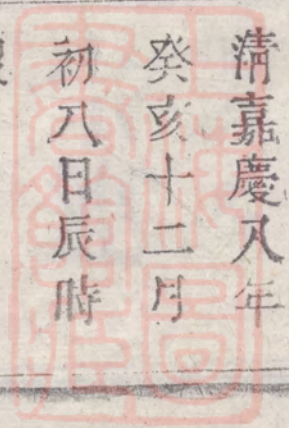 清嘉慶八年
癸亥十二月
初八日辰時